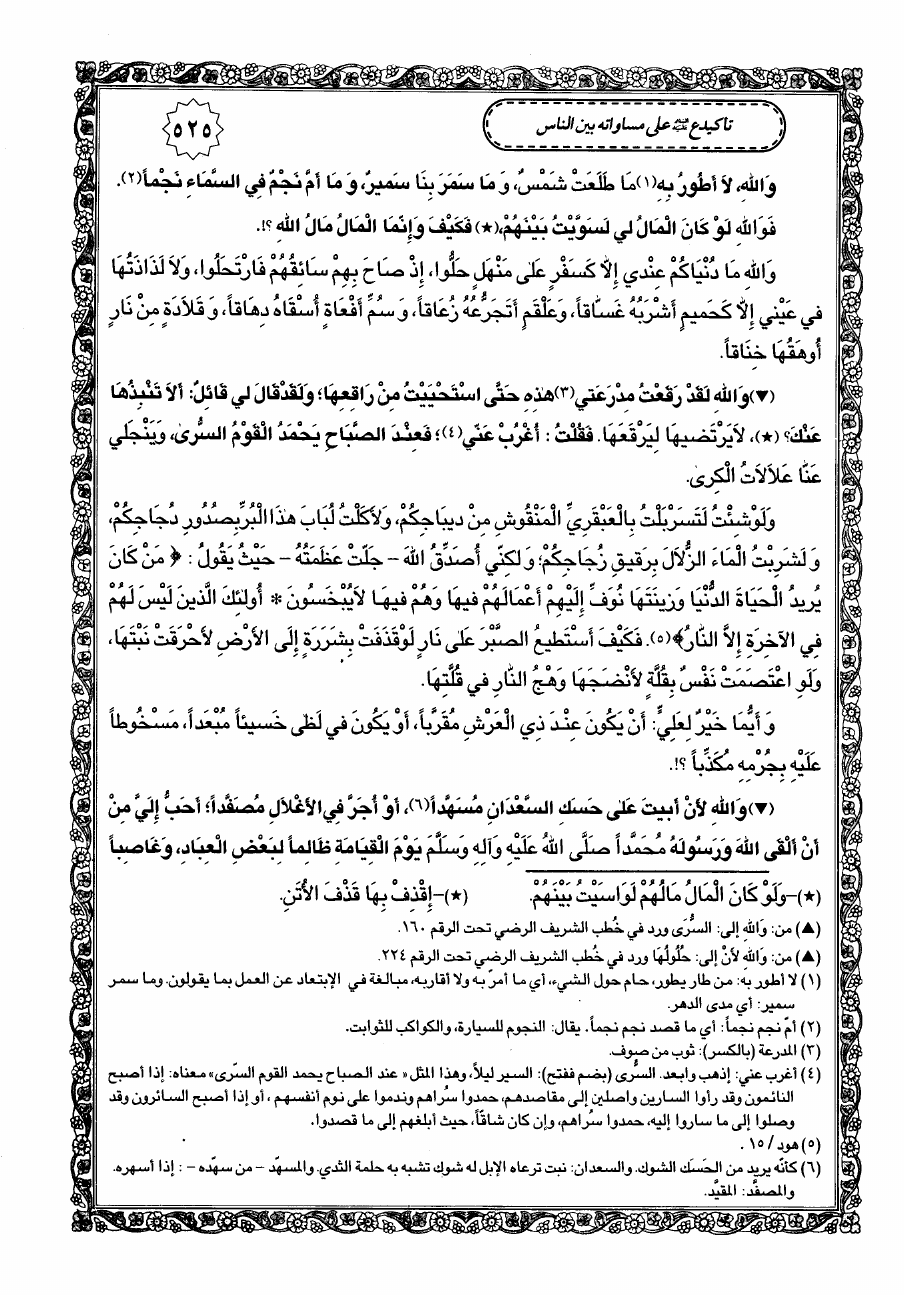 تاكيده ع على مساواته بين الناس
٥٢٥
وَاللهِ، لاَ أَطُورُ بِهِ(١) مَا طَلَعَتْ شَمْسٌ، وَ مَا سَمَرَ بِنَا سَميرٌ، وَ مَا أَمَّ نَجْمٌ فِي السَّمَاءِ نَجْماً(٢).
فَوَاللهِ لَوْ كَانَ الْمَالُ لي لَسَوَّيْتُ بَيْنَهُمْ،(★) فَكَيْفَ وَإِنَّمَا الْمَالُ مَالُ اللهِ ؟!.
وَاللهِ مَا دُنْيَاكُمْ عِنْدي إِلاَّ كَسَفْرٍ عَلى مَنْهَلٍ حَلُّوا، إِذْ صَاحَ بِهِمْ سَائِقُهُمْ فَارْتَحَلُوا، وَلاَ لَذَاذَتُهَا
في عَيْني إِلاَّ كَحَميمٍ أَشْرَبُهُ غَسَّاقاً، وَعَلْقَمٍ أَتَجَرَّعُهُ زُعَاقاً، وَ سُمِّ أَفْعَاةٍ أُسْقَاهُ دِهَاقاً، وَ قَلاَدَةٍ مِنْ نَارٍ
أُوهَقُهَا خِنَاقاً.
(▼) وَاللهِ لَقَدْ رَقَعْتُ مِدْرَعَتي(٣) هذِهِ حَتَّى اسْتَحْيَيْتُ مِنْ رَاقِعِهَا؛ وَلَقَدْ قَالَ لي قَائِلٌ: أَلاَ تَنْبِذُهَا
عَنْكَ؟ (★)، لاَيَرْتَضيهَا لِيَرْقَعَهَا. فَقُلْتُ : أُغْرُبْ عَنّي(٤)؛ فَعِنْدَ الصَّبَاحِ يَحْمَدُ الْقَوْمُ السُّرى، وَيَنْجَلي
عَنَّا عَلاَلاَتُ الْكَرى.
وَلَوْ شِئْتُ لَتَسَرْبَلْتُ بِالْعَبْقَرِيِّ الْمَنْقُوشِ مِنْ ديبَاجِكُمْ، وَلأَكَلْتُ لُبَابَ هذَا الْبُرِّ بِصُدُورِ دُجَاجِكُمْ،
وَ لَشَرِبْتُ الْمَاءَ الزُّلاَلَ بِرَقيقِ زُجَاجِكُمْ؛ وَ لكِنّي أُصَدِّقُ اللهَ - جَلَّتْ عَظَمَتُهُ - حَيْثُ يَقُولُ : ﴿ مَنْ كَانَ
يُريدُ الْحَيَاةَ الدُّنْيَا وَزينَتَهَا نُوَفِّ إِلَيْهِمْ أَعْمَالَهُمْ فيهَا وَهُمْ فيهَا لاَيُبْخَسُونَ * أُولئِكَ الَّذينَ لَيْسَ لَهُمْ
فِي الآخِرَةِ إِلاَّ النَّارُ﴾(٥). فَكَيْفَ أَسْتَطيعُ الصَّبْرَ عَلى نَارٍ لَوْ قَذَفَتْ بِشَرَرَةٍ إِلَى الأَرْضِ لأَحْرَقَتْ نَبْتَهَا،
وَلَوِ اعْتَصَمَتْ نَفْسٌ بِقُلَّةٍ لأَنْضَجَهَا وَهْجُ النَّارِ في قُلَّتِهَا.
وَ أَيُّمَا خَيْرٌ لِعَلِيٍّ: أَنْ يَكُونَ عِنْدَ ذِي الْعَرْشِ مُقَرَّباً، أَوْ يَكُونَ في لَظى خَسيئاً مُبْعَداً، مَسْخُوطاً
عَلَيْهِ بِجُرْمِهِ مُكَذَّباً ؟!.
(▼) وَاللهِ لأَنْ أَبيتَ عَلى حَسَكِ السَّعْدَانِ مُسَهَّداً(٦)، أَوْ أُجَرَّ فِي الأَغْلاَلِ مُصَفَّداً؛ أَحَبُّ إِلَيَّ مِنْ
أَنْ أَلْقَى اللهَ وَرَسُولَهُ مُحَمَّداً صَلَّى اللهُ عَلَيْهِ وَآلِهِ وَسَلَّمَ يَوْمَ الْقِيَامَةِ ظَالِماً لِبَعْضِ الْعِبَادِ، وَغَاصِباً
(★)-وَلَوْ كَانَ الْمَالُ مَالُهُمْ لَوَاسَيْتُ بَيْنَهُمْ. (★)-إِقْذِفْ بِهَا قَذْفَ الأُتُنِ.
(▲) من: وَاللهِ إلى: السُّرَى ورد في خُطب الشريف الرضي تحت الرقم ١٦٠.
(▲) من: وَاللهِ لأَنْ إلى: حُلُولُهَا ورد في خُطب الشريف الرضي تحت الرقم ٢٢٤.
(١) لا أطور به: من طار يطور، حام حول الشيء، أي ما أمرّ به ولا أقاربه، مبالغة في الإبتعاد عن العمل بما يقولون. وما سمر
سمير: أي مدى الدهر.
(٢) أمّ نجم نجماً: أي ما قصد نجم نجماً. يقال: النجوم للسيارة، والكواكب للثوابت.
(٣) المدرعة (بالكسر): ثوب من صوف.
(٤) أغرب عني: إذهب وابعد. السُّرى (بضم ففتح): السير ليلاً، وهذا المثل « عند الصباح يحمد القوم السّرى» معناه: إذا أصبح
النائمون وقد رأوا السارين واصلين إلى مقاصدهم، حمدوا سُراهم وندموا على نوم أنفسهم ، أو إذا أصبح السائرون وقد
وصلوا إلى ما ساروا إليه، حمدوا سُراهم، وإن كان شاقّاً، حيث أبلغهم إلى ما قصدوا.
(٥) هود / ١٥ .
(٦) كأنّه يريد من الحَسَك الشوك. والسعدان: نبت ترعاه الإبل له شوك تشبه به حلمة الثدي. والمسهّد - من سهّده - : إذا أسهره.
والمصفَّد: المقيَّد.